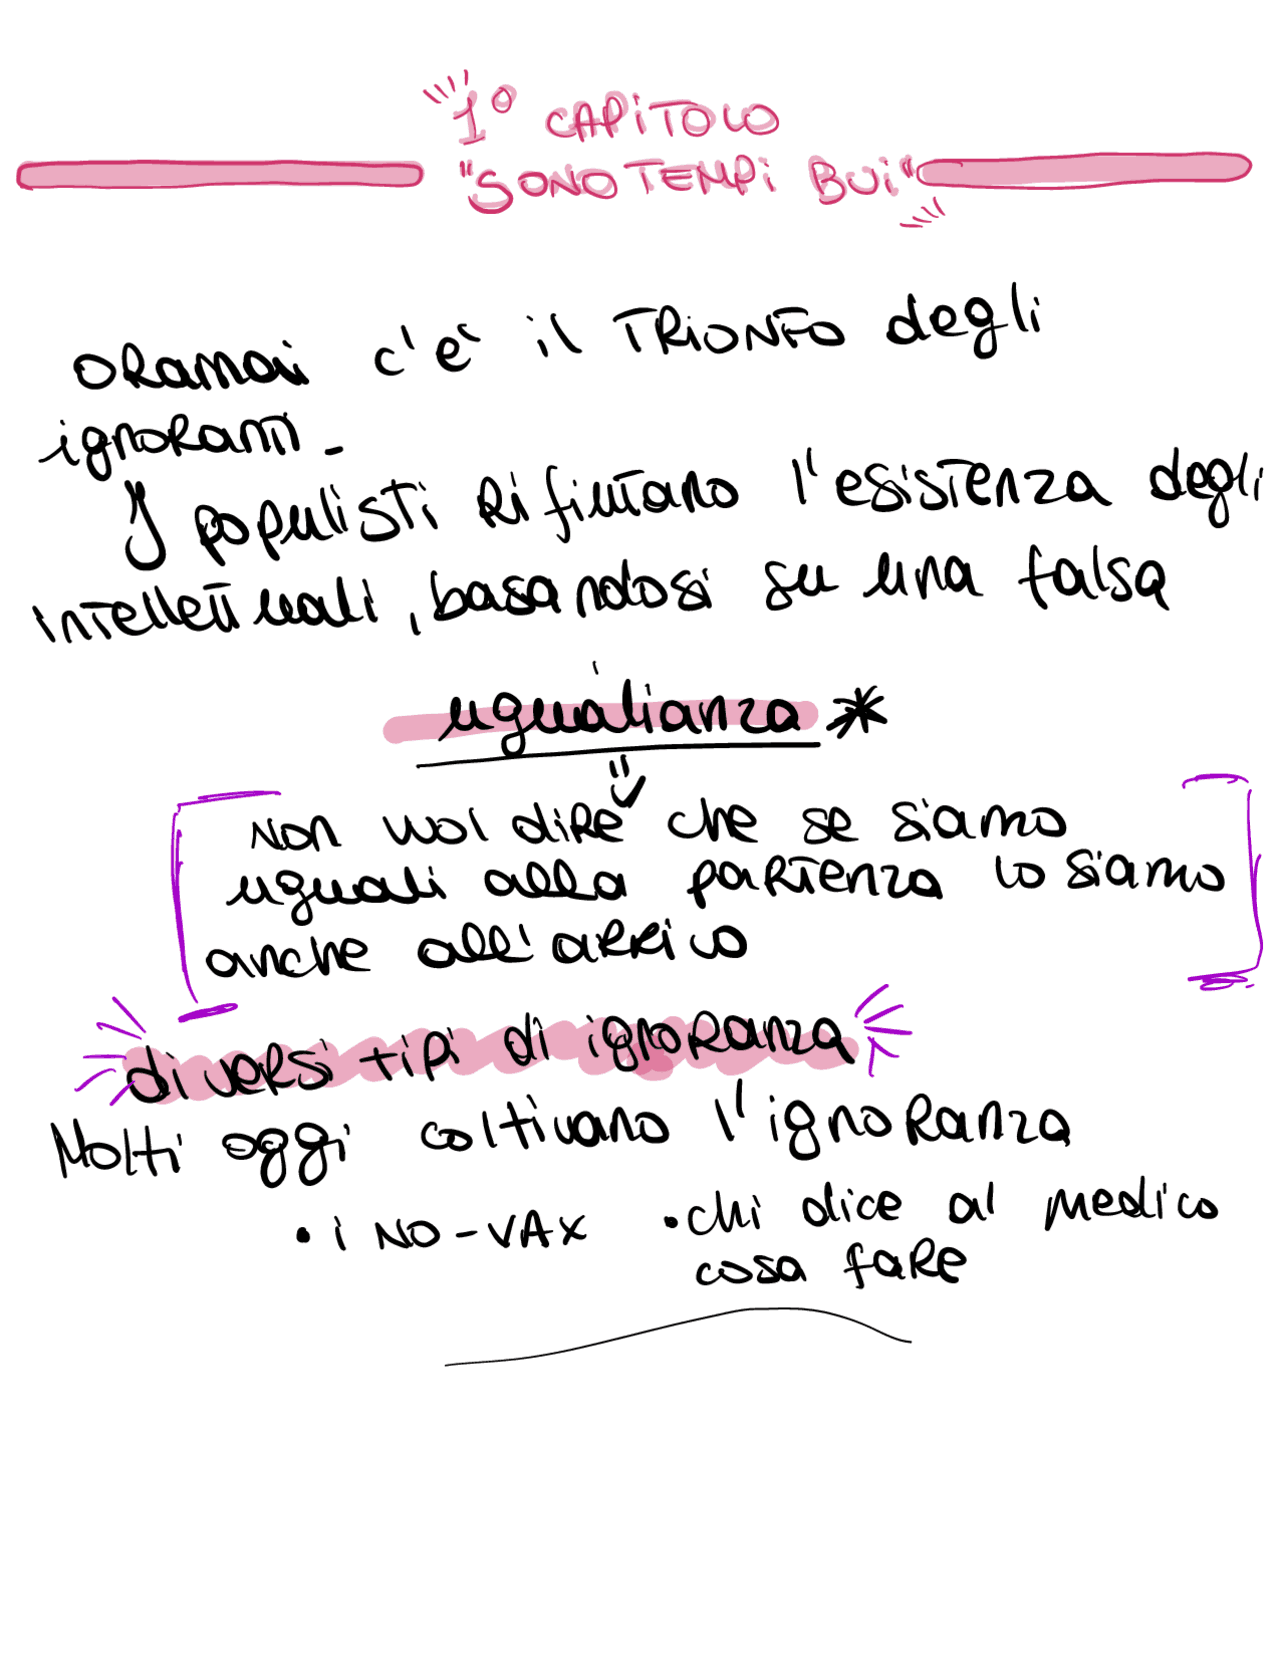 1° CAPITOLO
"SONO TEMPI BUI"
ORamai c'è il TRIONFO degli
ignoranti.
I populisti Rifiutano l'esistenza degli
intellettuali, basandosi su una falsa
ugualianza *
Non vuol dire che se siamo
uguali alla partenza lo siamo
anche all'arrivo
diversi tipi di ignoranza
Molti oggi coltivano l'ignoranza
• i NO-VAX • chi dice al medico
cosa fare